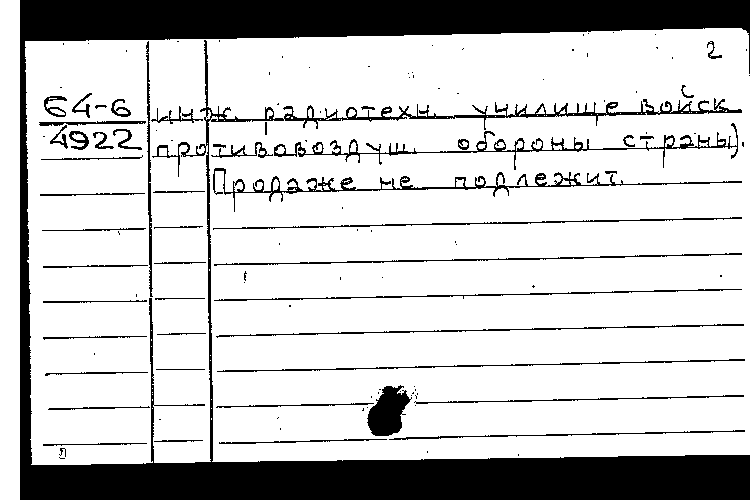 2
64-6 инж. радиотехн. училище войск
4922 противовоздуш. обороны страны).
Продаже не подлежит.